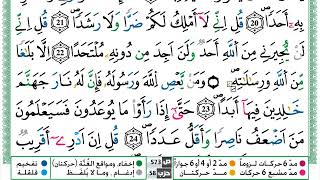 بِهِۦٓ أَحَدًا ﴿20﴾ قُلْ إِنِّي لَآ أَمْلِكُ لَكُمْ ضَرًّا وَلَا رَشَدًا ﴿21﴾ قُلْ إِنِّي
لَن يُجِيرَنِي مِنَ ٱللَّهِ أَحَدٌ وَلَنْ أَجِدَ مِن دُونِهِۦ مُلْتَحَدًا ﴿22﴾ إِلَّا بَلَٰغًا
مِّنَ ٱللَّهِ وَرِسَٰلَٰتِهِۦ وَمَن يَعْصِ ٱللَّهَ وَرَسُولَهُۥ فَإِنَّ لَهُۥ نَارَ جَهَنَّمَ
خَٰلِدِينَ فِيهَآ أَبَدًا ﴿23﴾ حَتَّىٰٓ إِذَا رَأَوْا۟ مَا يُوعَدُونَ فَسَيَعْلَمُونَ
مَنْ أَضْعَفُ نَاصِرًا وَأَقَلُّ عَدَدًا ﴿24﴾ قُلْ إِنْ أَدْرِيٓ أَقَرِيبٌ
مدّ 6 حركات لزوماً مدّ 2 أو 4 أو 6 جوازاً إخفاء، ومواقع الغُنَّة (حركتان) تفخيم
مدّ حركتان إدغام، وما لا يُلفَظ قلقلة
573